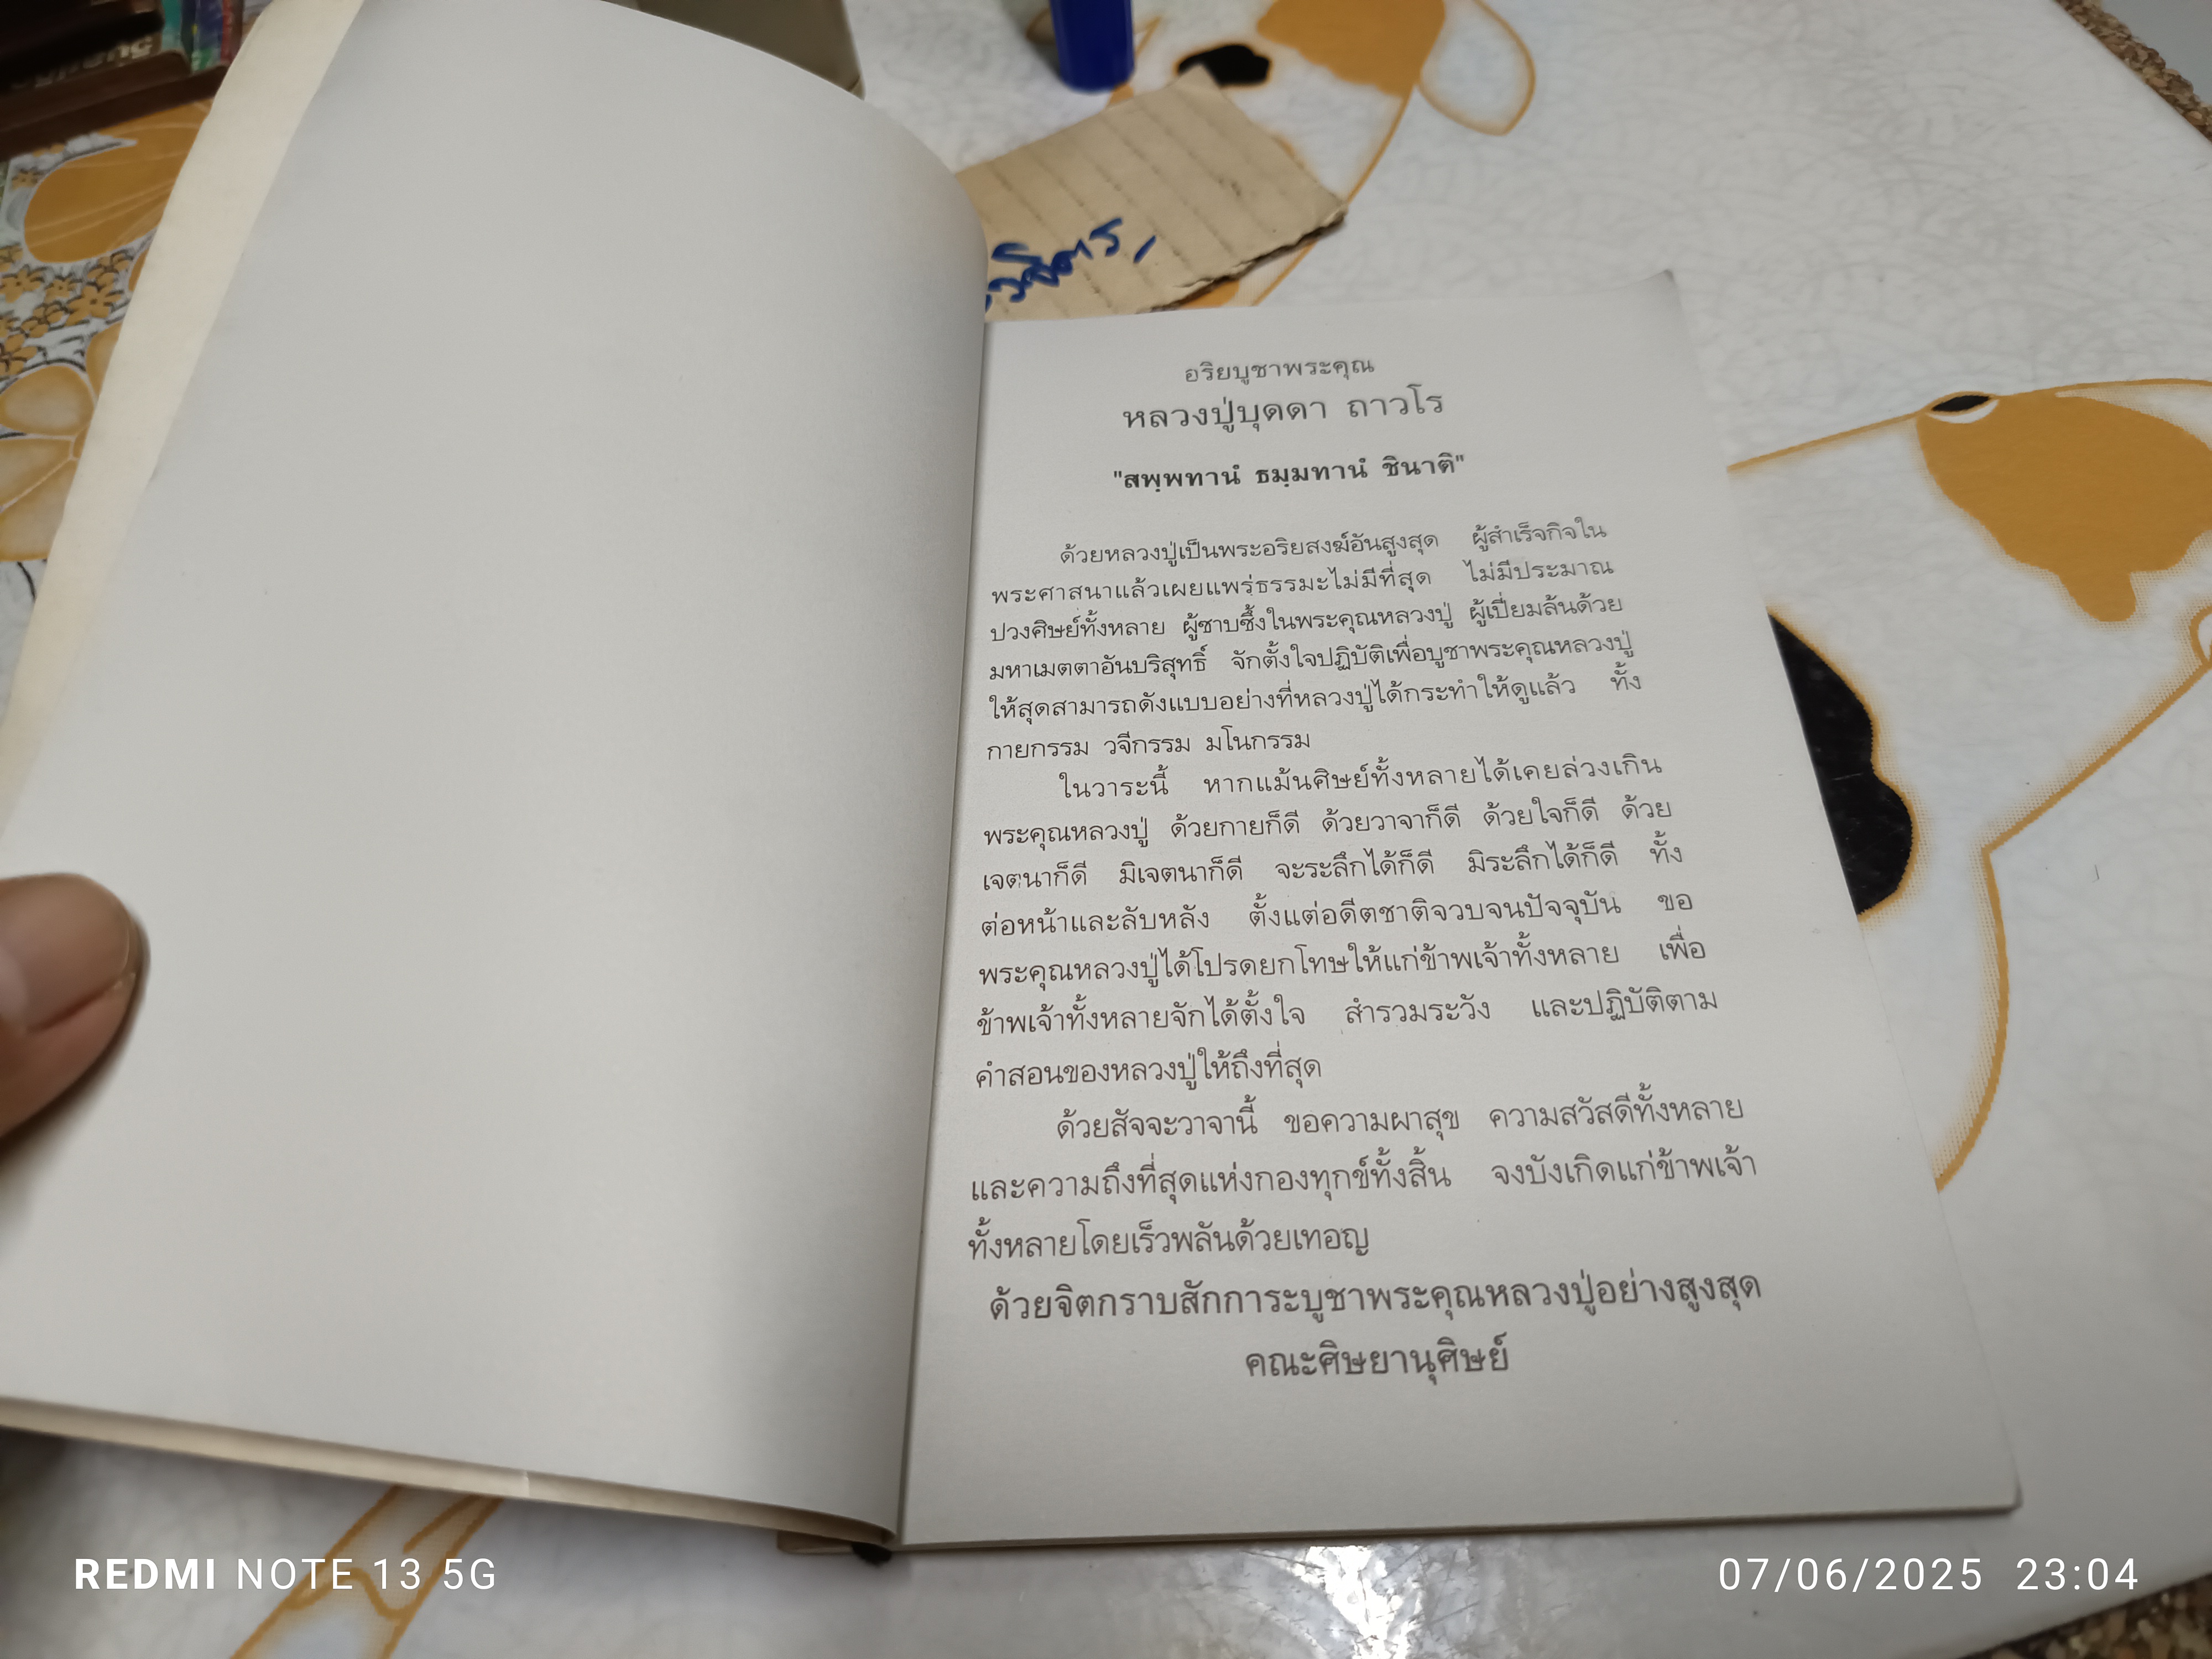 อริยบูชาพระคุณ
หลวงปู่บุดดา ถาวโร
"สพฺพทานํ ธมฺมทานํ ชินาติ"
ด้วยหลวงปู่เป็นพระอริยสงฆ์อันสูงสุด ผู้สำเร็จกิจใน
พระศาสนาแล้วเผยแพร่ธรรมะไม่มีที่สุด ไม่มีประมาณ
ปวงศิษย์ทั้งหลาย ผู้ซาบซึ้งในพระคุณหลวงปู่ ผู้เปี่ยมล้นด้วย
มหาเมตตาอันบริสุทธิ์ จักตั้งใจปฏิบัติเพื่อบูชาพระคุณหลวงปู่
ให้สุดสามารถดังแบบอย่างที่หลวงปู่ได้กระทำให้ดูแล้ว ทั้ง
กายกรรม วจีกรรม มโนกรรม
ในวาระนี้ หากแม้นศิษย์ทั้งหลายได้เคยล่วงเกิน
พระคุณหลวงปู่ ด้วยกายก็ดี ด้วยวาจาก็ดี ด้วยใจก็ดี ด้วย
เจตนาก็ดี มิเจตนาก็ดี จะระลึกได้ก็ดี มิระลึกได้ก็ดี ทั้ง
ต่อหน้าและลับหลัง ตั้งแต่อดีตชาติจวบจนปัจจุบัน ขอ
พระคุณหลวงปู่ได้โปรดยกโทษให้แก่ข้าพเจ้าทั้งหลาย เพื่อ
ข้าพเจ้าทั้งหลายจักได้ตั้งใจ สำรวมระวัง และปฏิบัติตาม
คำสอนของหลวงปู่ให้ถึงที่สุด
ด้วยสัจจะวาจานี้ ขอความผาสุข ความสวัสดีทั้งหลาย
และความถึงที่สุดแห่งกองทุกข์ทั้งสิ้น จงบังเกิดแก่ข้าพเจ้า
ทั้งหลายโดยเร็วพลันด้วยเทอญ
ด้วยจิตกราบสักการะบูชาพระคุณหลวงปู่อย่างสูงสุด
คณะศิษยานุศิษย์
REDMI NOTE 13 5G
07/06/2025 23:04